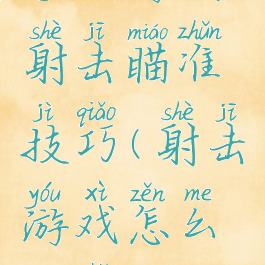 shè jī miáo zhǔn
射击瞄准
jì qiǎo shè jī
技巧(射击
yóu xì zěn me
游戏怎么